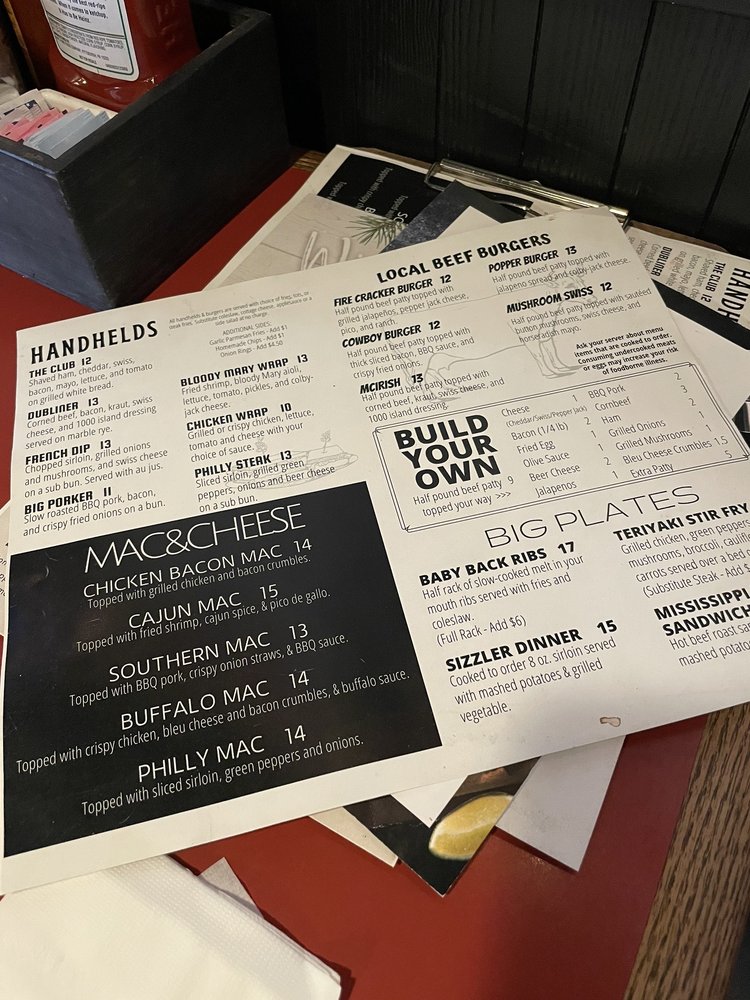 HANDHELDS
All handhelds & burgers are served with choice of frog, tots, or
steak fries. Substitute coleslaw, cottage cheese, applesauce or a
side salad at no charge.
ADDITIONAL SIDES:
Garlic Parmesan Fries - Add $1
Homemade Chips - Add $1
Onion Rings - Add $4.50
THE CLUB 12
Shaved ham, cheddar, swiss,
bacon, mayo, lettuce, and tomato
on grilled white bread.
DUBLINER 13
Corned beef, bacon, kraut, swiss
cheese, and 1000 island dressing
served on marble rye.
FRENCH DIP 13
Chopped sirloin, grilled onions
and mushrooms, and swiss cheese
on a sub bun. Served with au jus.
BIG PORKER 11
Slow roasted BBQ pork, bacon,
and crispy fried onions on a bun.
BLOODY MARY WRAP 13
Fried shrimp, bloody Mary aioli,
lettuce, tomato, pickles, and colby-
jack cheese.
CHICKEN WRAP 10
Grilled or crispy chicken, lettuce,
tomato and cheese with your
choice of sauce.
PHILLY STEAK 13
Sliced sirloin, grilled green
peppers, onions and beer cheese
on a sub bun.
MAC&CHEESE
CHICKEN BACON MAC 14
Topped with grilled chicken and bacon crumbles.
CAJUN MAC 15
Topped with fried shrimp, cajun spice, & pico de gallo.
SOUTHERN MAC 13
Topped with BBQ pork, crispy onion straws, & BBQ sauce.
BUFFALO MAC 14
Topped with crispy chicken, bleu cheese and bacon crumbles, & buffalo sauce.
PHILLY MAC 14
Topped with sliced sirloin, green peppers and onions.
LOCAL BEEF BURGERS
FIRE CRACKER BURGER 12
Half pound beef patty topped with
grilled jalapeños, pepper jack cheese,
pico, and ranch.
COWBOY BURGER 12
Half pound beef patty topped with
thick sliced bacon, BBQ sauce, and
crispy fried onions.
MCIRISH 13
Half pound beef patty topped with
corned beef, kraut, swiss cheese, and
1000 island dressing.
POPPER BURGER 13
Half pound beef patty topped with
jalapeno spread and colby jack cheese.
MUSHROOM SWISS 12
Half pound beef patty topped with sautéed
button mushrooms, swiss cheese, and
horseradish mayo.
Ask your server about menu
items that are cooked to order.
Consuming undercooked meats
or eggs may increase your risk
of foodborne illness.
BUILD
YOUR
OWN
Half pound beef patty 9
topped your way >>>
Cheese 1
(Cheddar/Swiss/Pepper Jack)
Bacon (1/4 lb) 2
Fried Egg 1
Olive Sauce 1
Beer Cheese 2
Jalapenos 1
BBQ Pork 2
Cornbeef 2
Ham 2
Grilled Onions 1
Grilled Mushrooms 1
Bleu Cheese Crumbles 1.5
Extra Patty 5
BIG PLATES
BABY BACK RIBS 17
Half rack of slow-cooked melt in your
mouth ribs served with fries and
coleslaw.
(Full Rack - Add $6)
SIZZLER DINNER 15
Cooked to order 8 oz. sirloin served
with mashed potatoes & grilled
vegetable.
TERIYAKI STIR FRY
Grilled chicken, green peppers
mushrooms, broccoli,
carrots served over a bed
(Substitute Steak - Add
MISSISSIPPI
SANDWICH
Hot beef roast
mashed potato
THE CLUB 12
DUBLINER